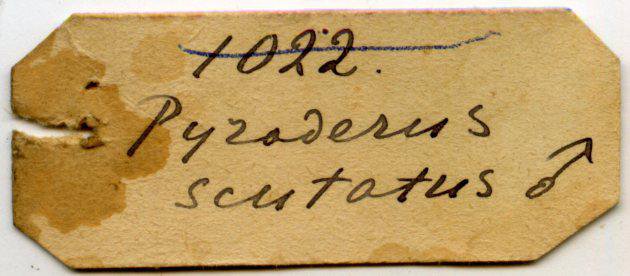 1022.
Pyroderus
scutatus ♂